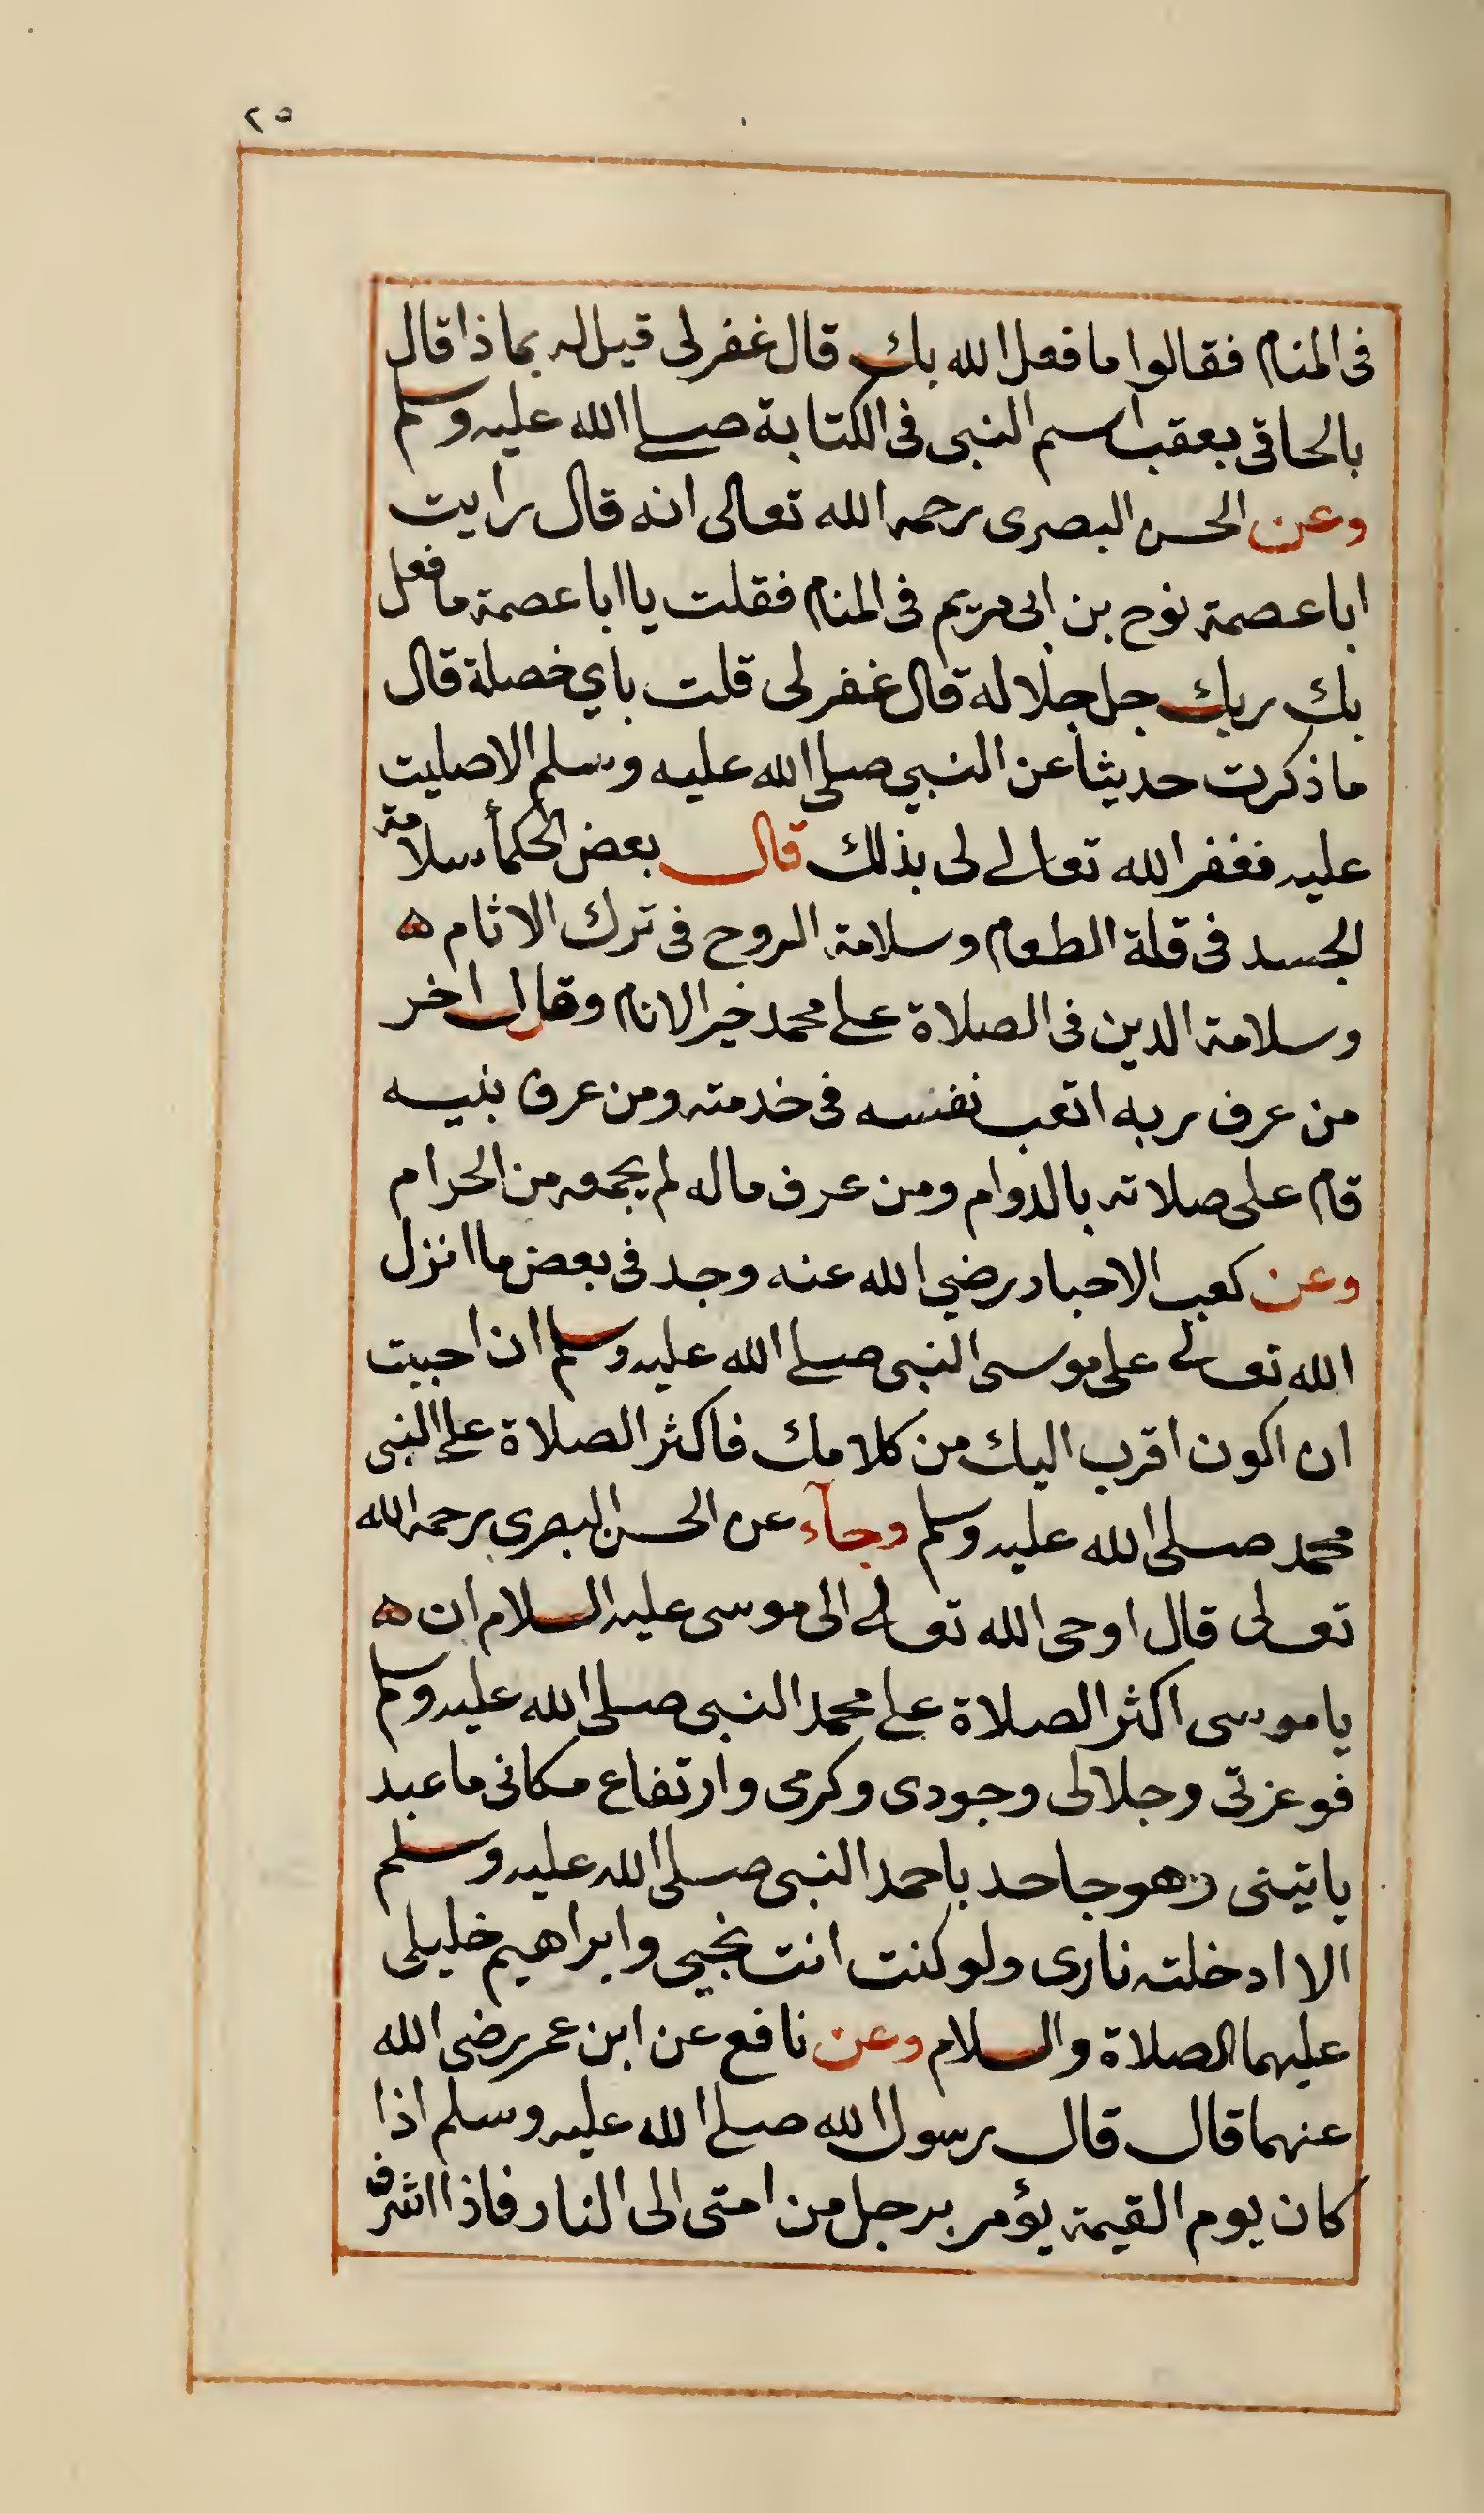 ٢٥
فى المنام فقالوا ما فعل الله بك قال غفر لى قيل له بماذا قال
بالحاقى بعقب اسم النبى فى الكتابة صلى الله عليه وسلم
وعن الحسن البصرى رحمه الله تعالى انه قال رايت
ابا عصمة نوح بن ابى مريم فى المنام فقلت يا ابا عصمة ما فعل
بك ربك جل جلاله قال غفر لى قلت بأي خصلة قال
ما ذكرت حديثا عن النبي صلى الله عليه وسلم الا صليت
عليه فغفر الله تعالى لى بذلك قال بعض الحكمأ سلامة
الجسد فى قلة الطعام وسلامة الروح فى ترك الاثام ه
وسلامة الدين فى الصلاة على محمد خير الانام وقال اخر
من عرف ربه اتعب نفسه فى خدمته ومن عرف بنيه
قام على صلاته بالدوام ومن عرف ماله لم يجمعه من الحرام
وعن كعب الاحبار رضي الله عنه وجد فى بعض ما انزل
الله تعالى على موسى النبى صلى الله عليه وسلم ان احببت
ان اكون اقرب اليك من كلامك فاكثر الصلاة على النبى
محمد صلى الله عليه وسلم وجآء عن الحسن البصرى رحمه الله
تعالى قال اوحى الله تعالى الى موسى عليه السلام ان ه
يا موسى اكثر الصلاة على محمد النبى صلى الله عليه وسلم
فوعزتى وجلالى وجودى وكرمى وارتفاع مكانى ما عبد
ياتينى وهو جاحد باحمد النبى صلى الله عليه وسلم
الا ادخلته نارى ولو كنت انت نجيي وابراهيم خليلى
عليهما الصلاة والسلام وعن نافع عن ابن عمر رضى الله
عنهما قال قال رسول الله صلى الله عليه وسلم اذا
كان يوم القيمة يؤمر برجل من امتى الى النار فاذا اشرف